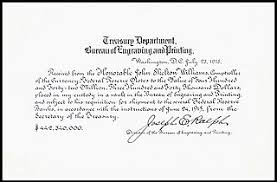 Treasury Department,
Bureau of Engraving and Printing,
Washington, D.C. July 23, 1915.
Received from the Honorable John Skelton Williams, Comptroller
of the Currency, Federal Reserve Notes to the Value of Four Hundred
and Forty-two Million, Three Hundred and Forty Thousand Dollars,
placed in my custody in a vault in the Bureau of Engraving and Printing,
and subject to his requisition for shipment to the several Federal Reserve
Banks, in accordance with the instructions of June 24, 1915, from the
Secretary of the Treasury.
Joseph E. Ralph
Director of the Bureau of Engraving and Printing.
$ 442,340,000.